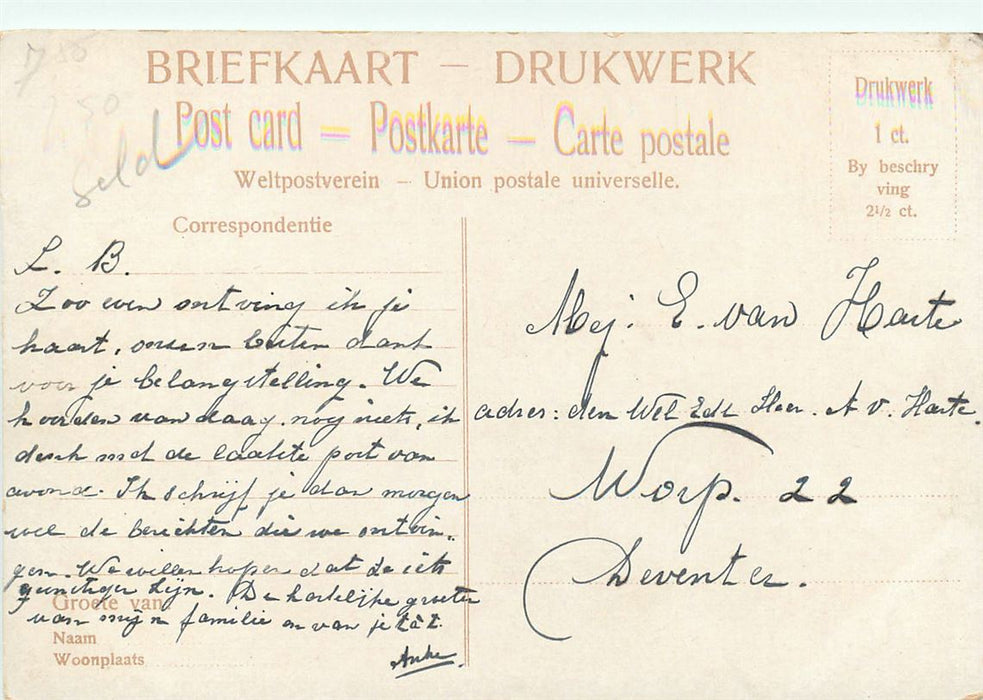 BRIEFKAART – DRUKWERK
Post card = Postkarte – Carte postale
Weltpostverein – Union postale universelle.
Drukwerk
1 ct.
By beschry
ving
2½ ct.
7 50
7 50
Geld
Correspondentie
L. B.
Zoo even ontving ik je
kaart, onzen besten dank
voor je belangstelling. We
hoorden vandaag nog niets, ik
denk met de laatste post van
avond. Ik schrijf je dan morgen
wel de berichten die we ontvin-
gen. We willen hopen dat ze iets
gunstiger zijn. De hartelijke groeten
van mijn familie en van je
Anke
Groete van
Naam
Woonplaats
Mej. E. van Harte
adres: den Wel Edl Heer. A v. Harte.
Worp. 22
Deventer.